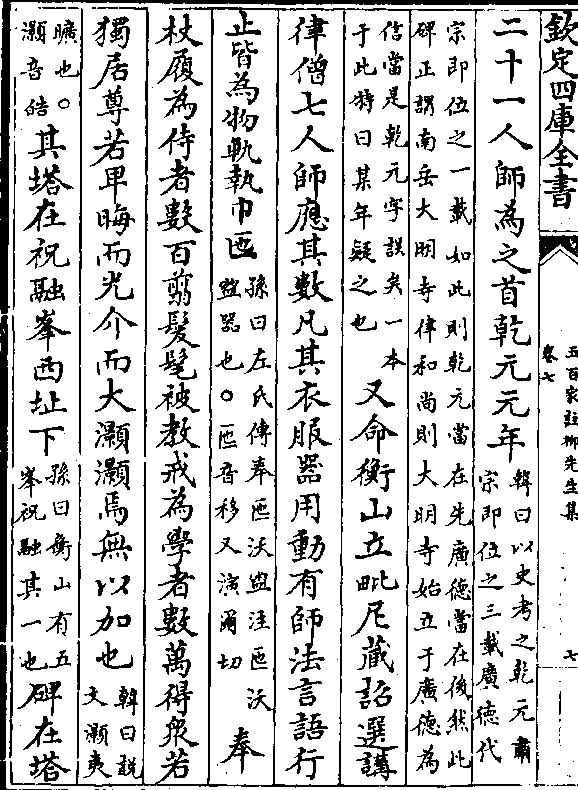 欽定四庫全書
五百家註柳先生集
卷七
七
二十一人師為之首乾元元年韓曰以史考之乾元肅
宗即位之三載廣德代
宗即位之一載如此則乾元當在先廣德當在後然此
碑正謂南岳大明寺律和尚則大明寺始立于廣德為
信當是乾元字誤矣一本
于此特曰某年疑之也又命衡山立毗尼藏詔選講
律僧七人師應其數凡其衣服器用動有師法言語行
止皆為物軌執巾匜孫曰左氏傳奉匜沃盥注匜沃
盥器也○匜音移又演爾切奉
杖屨為侍者數百翦髮髦被教戒為學者數萬得衆若
獨居尊若卑晦而光介而大灝灝焉無以加也韓曰説
文灝夷
曠也○
灝音皓其塔在祝融峯西址下孫曰衡山有五
峯祝融其一也碑在塔